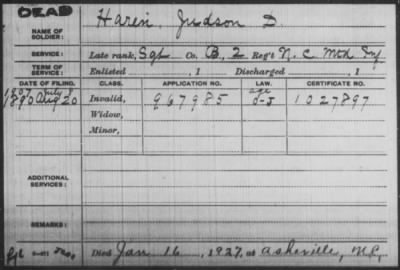 DEAD
NAME OF SOLDIER: Haren, Judson D.
SERVICE: Late rank, Sgt Co. B, 2 Reg't N. C. Mtd Inf
TERM OF SERVICE: Enlisted , 1 Discharged , 1
DATE OF FILING. CLASS. APPLICATION NO. LAW. CERTIFICATE NO.
1907 July 8 age
1890 Aug 20 Invalid, 967985 1027897
Widow,
Minor,
ADDITIONAL SERVICES:
REMARKS:
Died Jan 16, 1927, at Asheville, N.C.